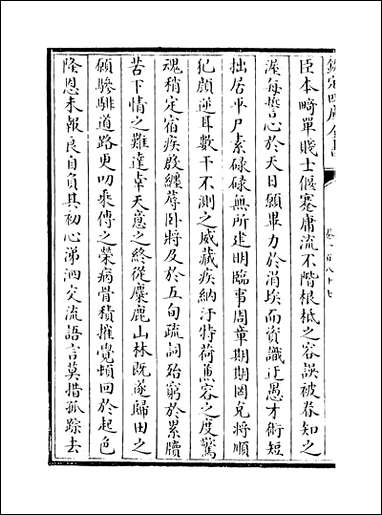 欽定四庫全書
卷一百八十七
臣本畸單賤士偃蹇庸流不階根柢之容誤被眷知之
渥每誓心於天日願畢力於涓埃而資識迂愚才術短
拙居平尸素碌碌無所建明臨事周章期期罔克將順
犯顔逆耳數干不測之威藏疾納汙特荷蕉容之度驚
魂稍定宿疾啟纏蓐卧將及於五旬疏詞殆窮於累牘
苦下情之難達幸天意之終從麋鹿山林既遂歸田之
願驂騑道路更叨乘傳之榮病骨積摧覺頓回於起色
隆恩未報良自負其初心涕泗交流語言莫措孤踪去